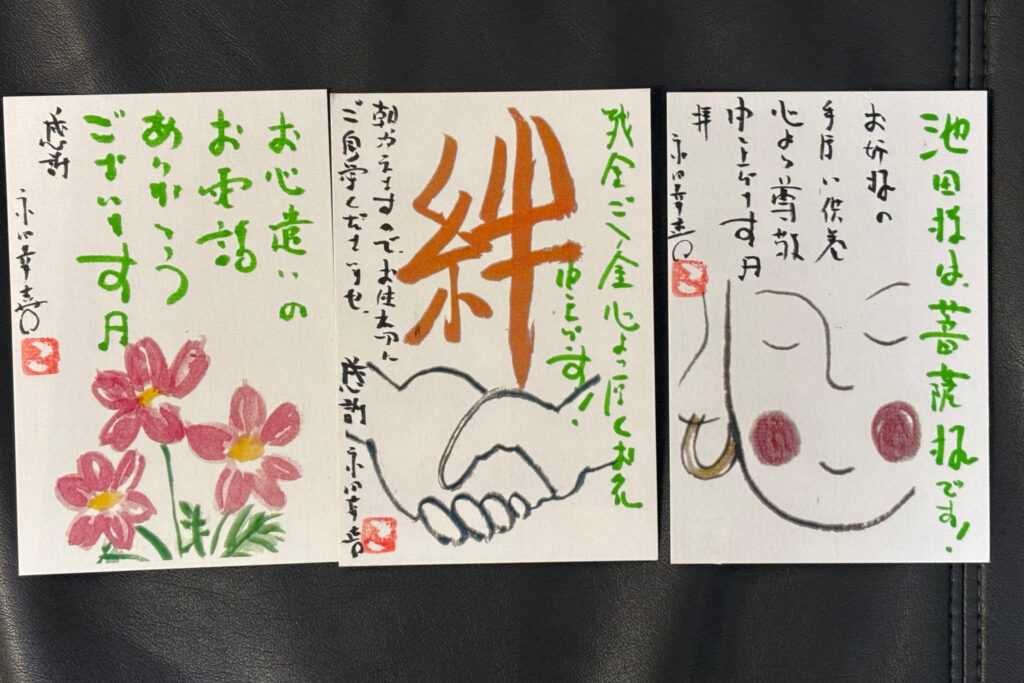 お心遣いの
お電話
ありがとう
ございます
感謝
永田幸喜
ご入金心より厚くお礼
申し上げます！
絆
えますのでお
ご自愛くださいませ
感謝 永田幸喜
池田様は、菩薩様です！
お姉様の
手厚い供養
心より尊敬
申し上げます
拝 永田幸喜